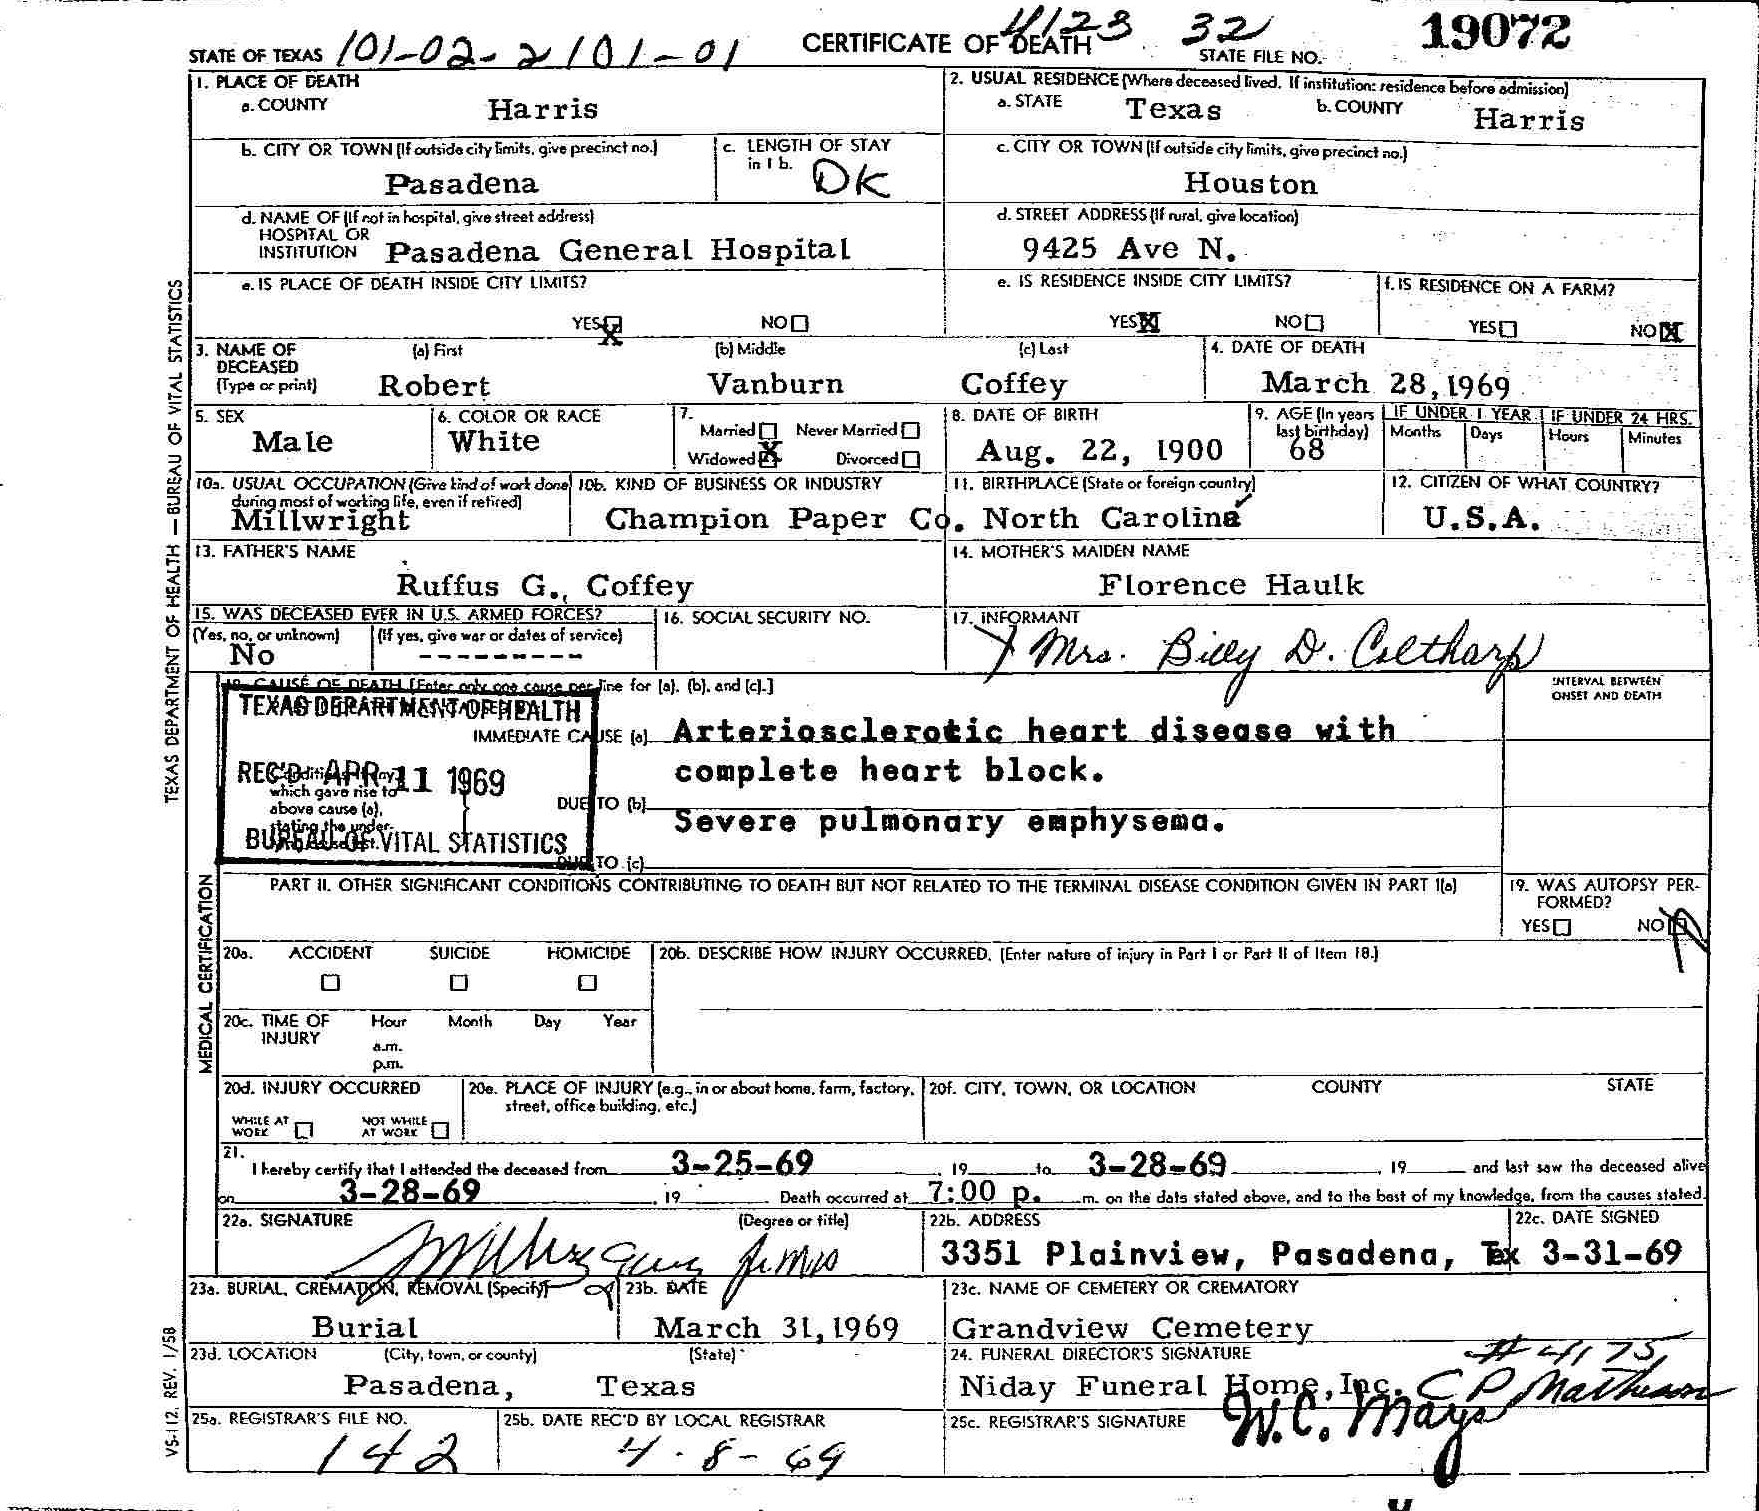 4123 32 19072
STATE OF TEXAS 101-02-2 101-01 CERTIFICATE OF DEATH STATE FILE NO.
1. PLACE OF DEATH
a. COUNTY Harris
2. USUAL RESIDENCE (Where deceased lived. If institution: residence before admission)
a. STATE Texas b. COUNTY Harris
b. CITY OR TOWN (If outside city limits, give precinct no.) Pasadena
c. LENGTH OF STAY in 1 b. DK
c. CITY OR TOWN (If outside city limits, give precinct no.) Houston
d. NAME OF (If not in hospital, give street address)
HOSPITAL OR
INSTITUTION Pasadena General Hospital
d. STREET ADDRESS (If rural, give location)
9425 Ave N.
e. IS PLACE OF DEATH INSIDE CITY LIMITS?
YES X NO
e. IS RESIDENCE INSIDE CITY LIMITS?
YES X NO
f. IS RESIDENCE ON A FARM?
YES NO X
3. NAME OF DECEASED (Type or print)
(a) First (b) Middle (c) Last
Robert Vanburn Coffey
4. DATE OF DEATH
March 28, 1969
5. SEX
Male
6. COLOR OR RACE
White
7.
Married Never Married
Widowed X Divorced
8. DATE OF BIRTH
Aug. 22, 1900
9. AGE (In years last birthday)
68
IF UNDER 1 YEAR
Months Days
IF UNDER 24 HRS.
Hours Minutes
10a. USUAL OCCUPATION (Give kind of work done during most of working life, even if retired)
Millwright
10b. KIND OF BUSINESS OR INDUSTRY
Champion Paper Co.
11. BIRTHPLACE (State or foreign country)
North Carolina
12. CITIZEN OF WHAT COUNTRY?
U.S.A.
13. FATHER'S NAME
Ruffus G., Coffey
14. MOTHER'S MAIDEN NAME
Florence Haulk
15. WAS DECEASED EVER IN U.S. ARMED FORCES?
(Yes, no, or unknown) (If yes, give war or dates of service)
No ---------
16. SOCIAL SECURITY NO.
17. INFORMANT
X Mrs. Billy D. Coltharp
18. CAUSE OF DEATH [Enter only one cause per line for (a), (b), and (c).]
INTERVAL BETWEEN
ONSET AND DEATH
TEXAS DEPARTMENT OF HEALTH
REC'D APR 11 1969
BUREAU OF VITAL STATISTICS
IMMEDIATE CAUSE (a) Arteriosclerotic heart disease with
complete heart block.
which gave rise to
above cause (a),
stating the under-
DUE TO (b)
Severe pulmonary emphysema.
DUE TO (c)
PART II. OTHER SIGNIFICANT CONDITIONS CONTRIBUTING TO DEATH BUT NOT RELATED TO THE TERMINAL DISEASE CONDITION GIVEN IN PART I(a)
19. WAS AUTOPSY PER-
FORMED?
YES NO
20a. ACCIDENT SUICIDE HOMICIDE
20b. DESCRIBE HOW INJURY OCCURRED. (Enter nature of injury in Part I or Part II of Item 18.)
20c. TIME OF INJURY
Hour Month Day Year
a.m.
p.m.
20d. INJURY OCCURRED
WHILE AT WORK NOT WHILE AT WORK
20e. PLACE OF INJURY (e.g., in or about home, farm, factory,
street, office building, etc.)
20f. CITY, TOWN, OR LOCATION COUNTY STATE
21.
I hereby certify that I attended the deceased from 3-25-69, 19 to 3-28-69, 19 and last saw the deceased alive
on 3-28-69, 19 Death occurred at 7:00 p. m. on the date stated above, and to the best of my knowledge, from the causes stated.
22a. SIGNATURE (Degree or title)
Jr. MD
22b. ADDRESS
3351 Plainview, Pasadena, Tex
22c. DATE SIGNED
3-31-69
23a. BURIAL, CREMATION, REMOVAL (Specify)
Burial
23b. DATE
March 31, 1969
23c. NAME OF CEMETERY OR CREMATORY
Grandview Cemetery
23d. LOCATION (City, town, or county) (State)
Pasadena, Texas
24. FUNERAL DIRECTOR'S SIGNATURE # 4175
Niday Funeral Home, Inc. C P Mathieson
25a. REGISTRAR'S FILE NO.
142
25b. DATE REC'D BY LOCAL REGISTRAR
4-8-69
25c. REGISTRAR'S SIGNATURE
W.C. Mays
TEXAS DEPARTMENT OF HEALTH — BUREAU OF VITAL STATISTICS
MEDICAL CERTIFICATION
VS-112, REV. 1/58